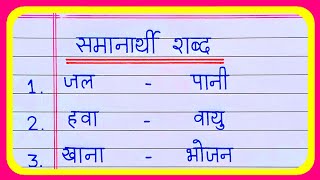 समानार्थी शब्द
1. जल - पानी
2. हवा - वायु
3. खाना - भोजन